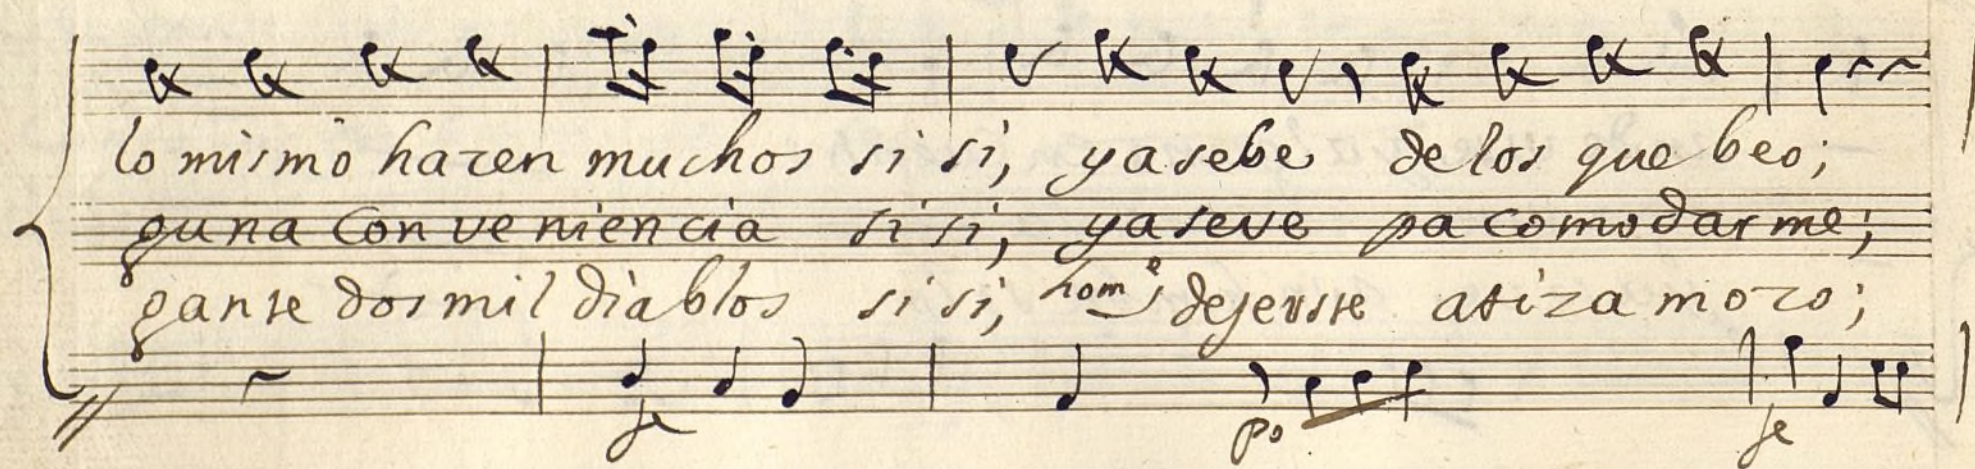 lo mismo hazen muchos si si, ya sebe de los que beo;
guna Conveniencia si si, ya seve pa comodarme;
ganse dos mil diablos si si, home, dejerste atiza mozo;
fe po fe